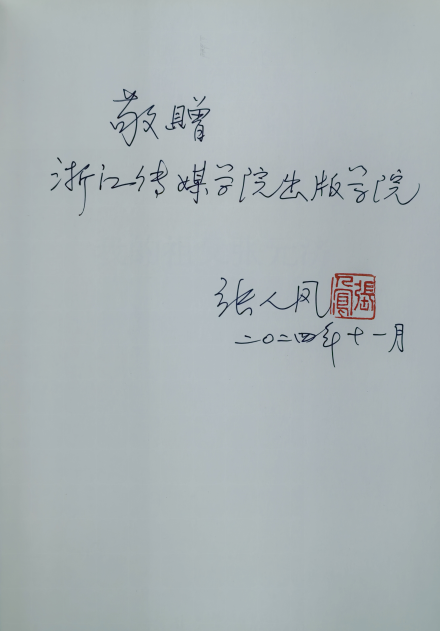 敬赠
浙江传媒学院出版学院
张人凤
張人鳳
二〇二四年十一月